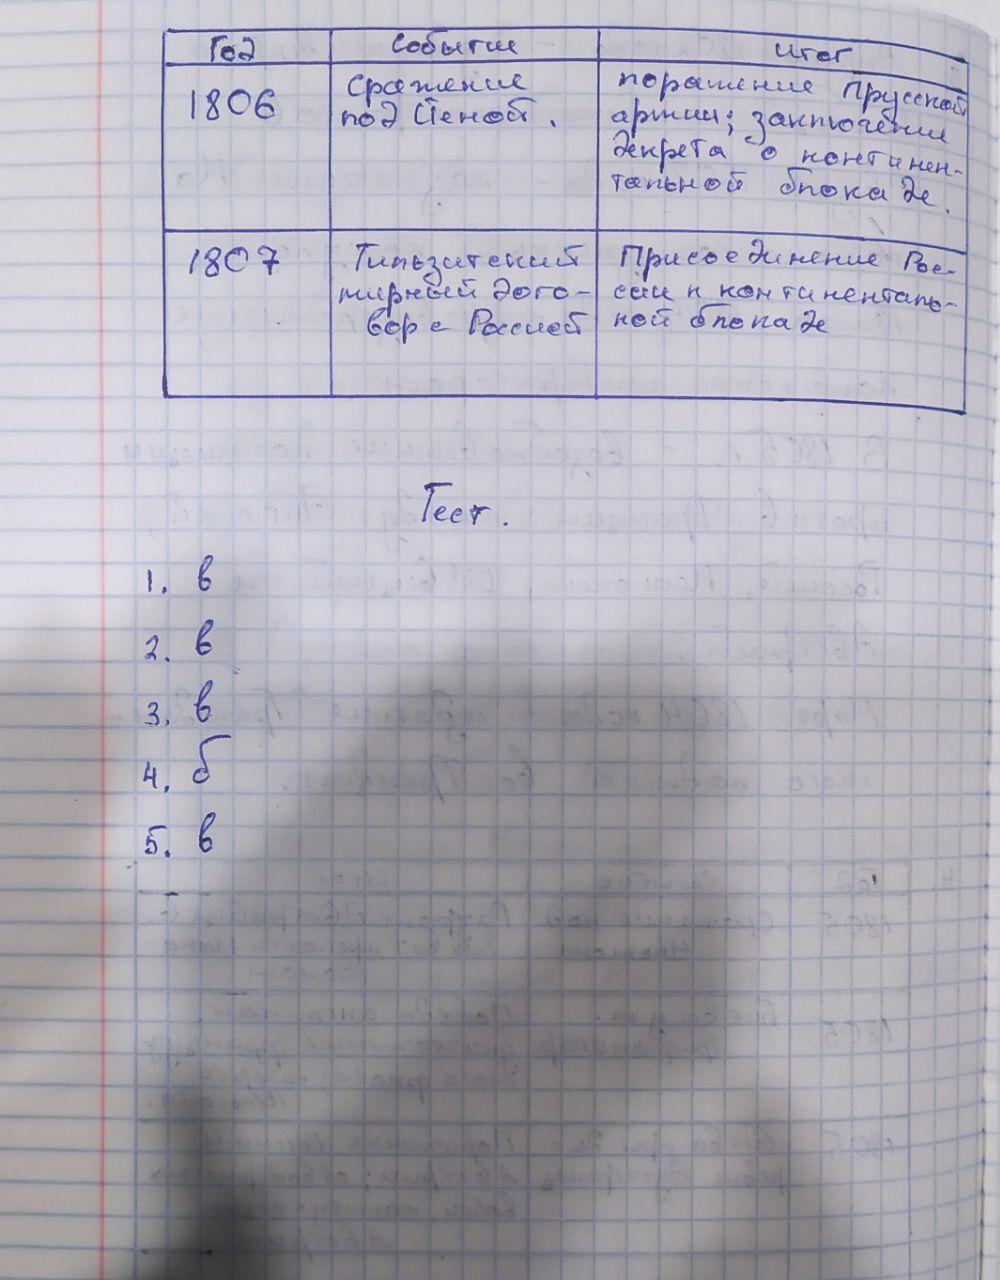 Год Событие Итог
1806 Сражение под Йеной. поражение Прусской
армии; заключение
декрета о континен-
тальной блокаде.
1807 Тильзитский
мирный дого-
вор с Россией
Присоединение Рос-
сии к континенталь-
ной блокаде
Тест.
1. в
2. в
3. в
4. б
5. в